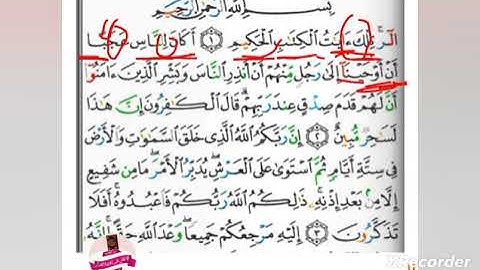 بِسْمِ اللَّهِ الرَّحْمَٰنِ الرَّحِيمِ
الٓر ۚ تِلْكَ ءَايَٰتُ الْكِتَٰبِ الْحَكِيمِ ١ أَكَانَ لِلنَّاسِ عَجَبًا
أَنْ أَوْحَيْنَآ إِلَىٰ رَجُلٍ مِّنْهُمْ أَنْ أَنذِرِ النَّاسَ وَبَشِّرِ الَّذِينَ ءَامَنُوٓا۟
أَنَّ لَهُمْ قَدَمَ صِدْقٍ عِندَ رَبِّهِمْ ۗ قَالَ الْكَٰفِرُونَ إِنَّ هَٰذَا
لَسَٰحِرٌ مُّبِينٌ ٢ إِنَّ رَبَّكُمُ اللَّهُ الَّذِى خَلَقَ السَّمَٰوَٰتِ وَالْأَرْضَ
فِى سِتَّةِ أَيَّامٍ ثُمَّ اسْتَوَىٰ عَلَى الْعَرْشِ ۖ يُدَبِّرُ الْأَمْرَ ۖ مَا مِن شَفِيعٍ
إِلَّا مِنۢ بَعْدِ إِذْنِهِۦ ۚ ذَٰلِكُمُ اللَّهُ رَبُّكُمْ فَاعْبُدُوهُ ۚ أَفَلَا
تَذَكَّرُونَ ٣ إِلَيْهِ مَرْجِعُكُمْ جَمِيعًا ۖ وَعْدَ اللَّهِ حَقًّا ۚ إِنَّهُۥ
XRecorder